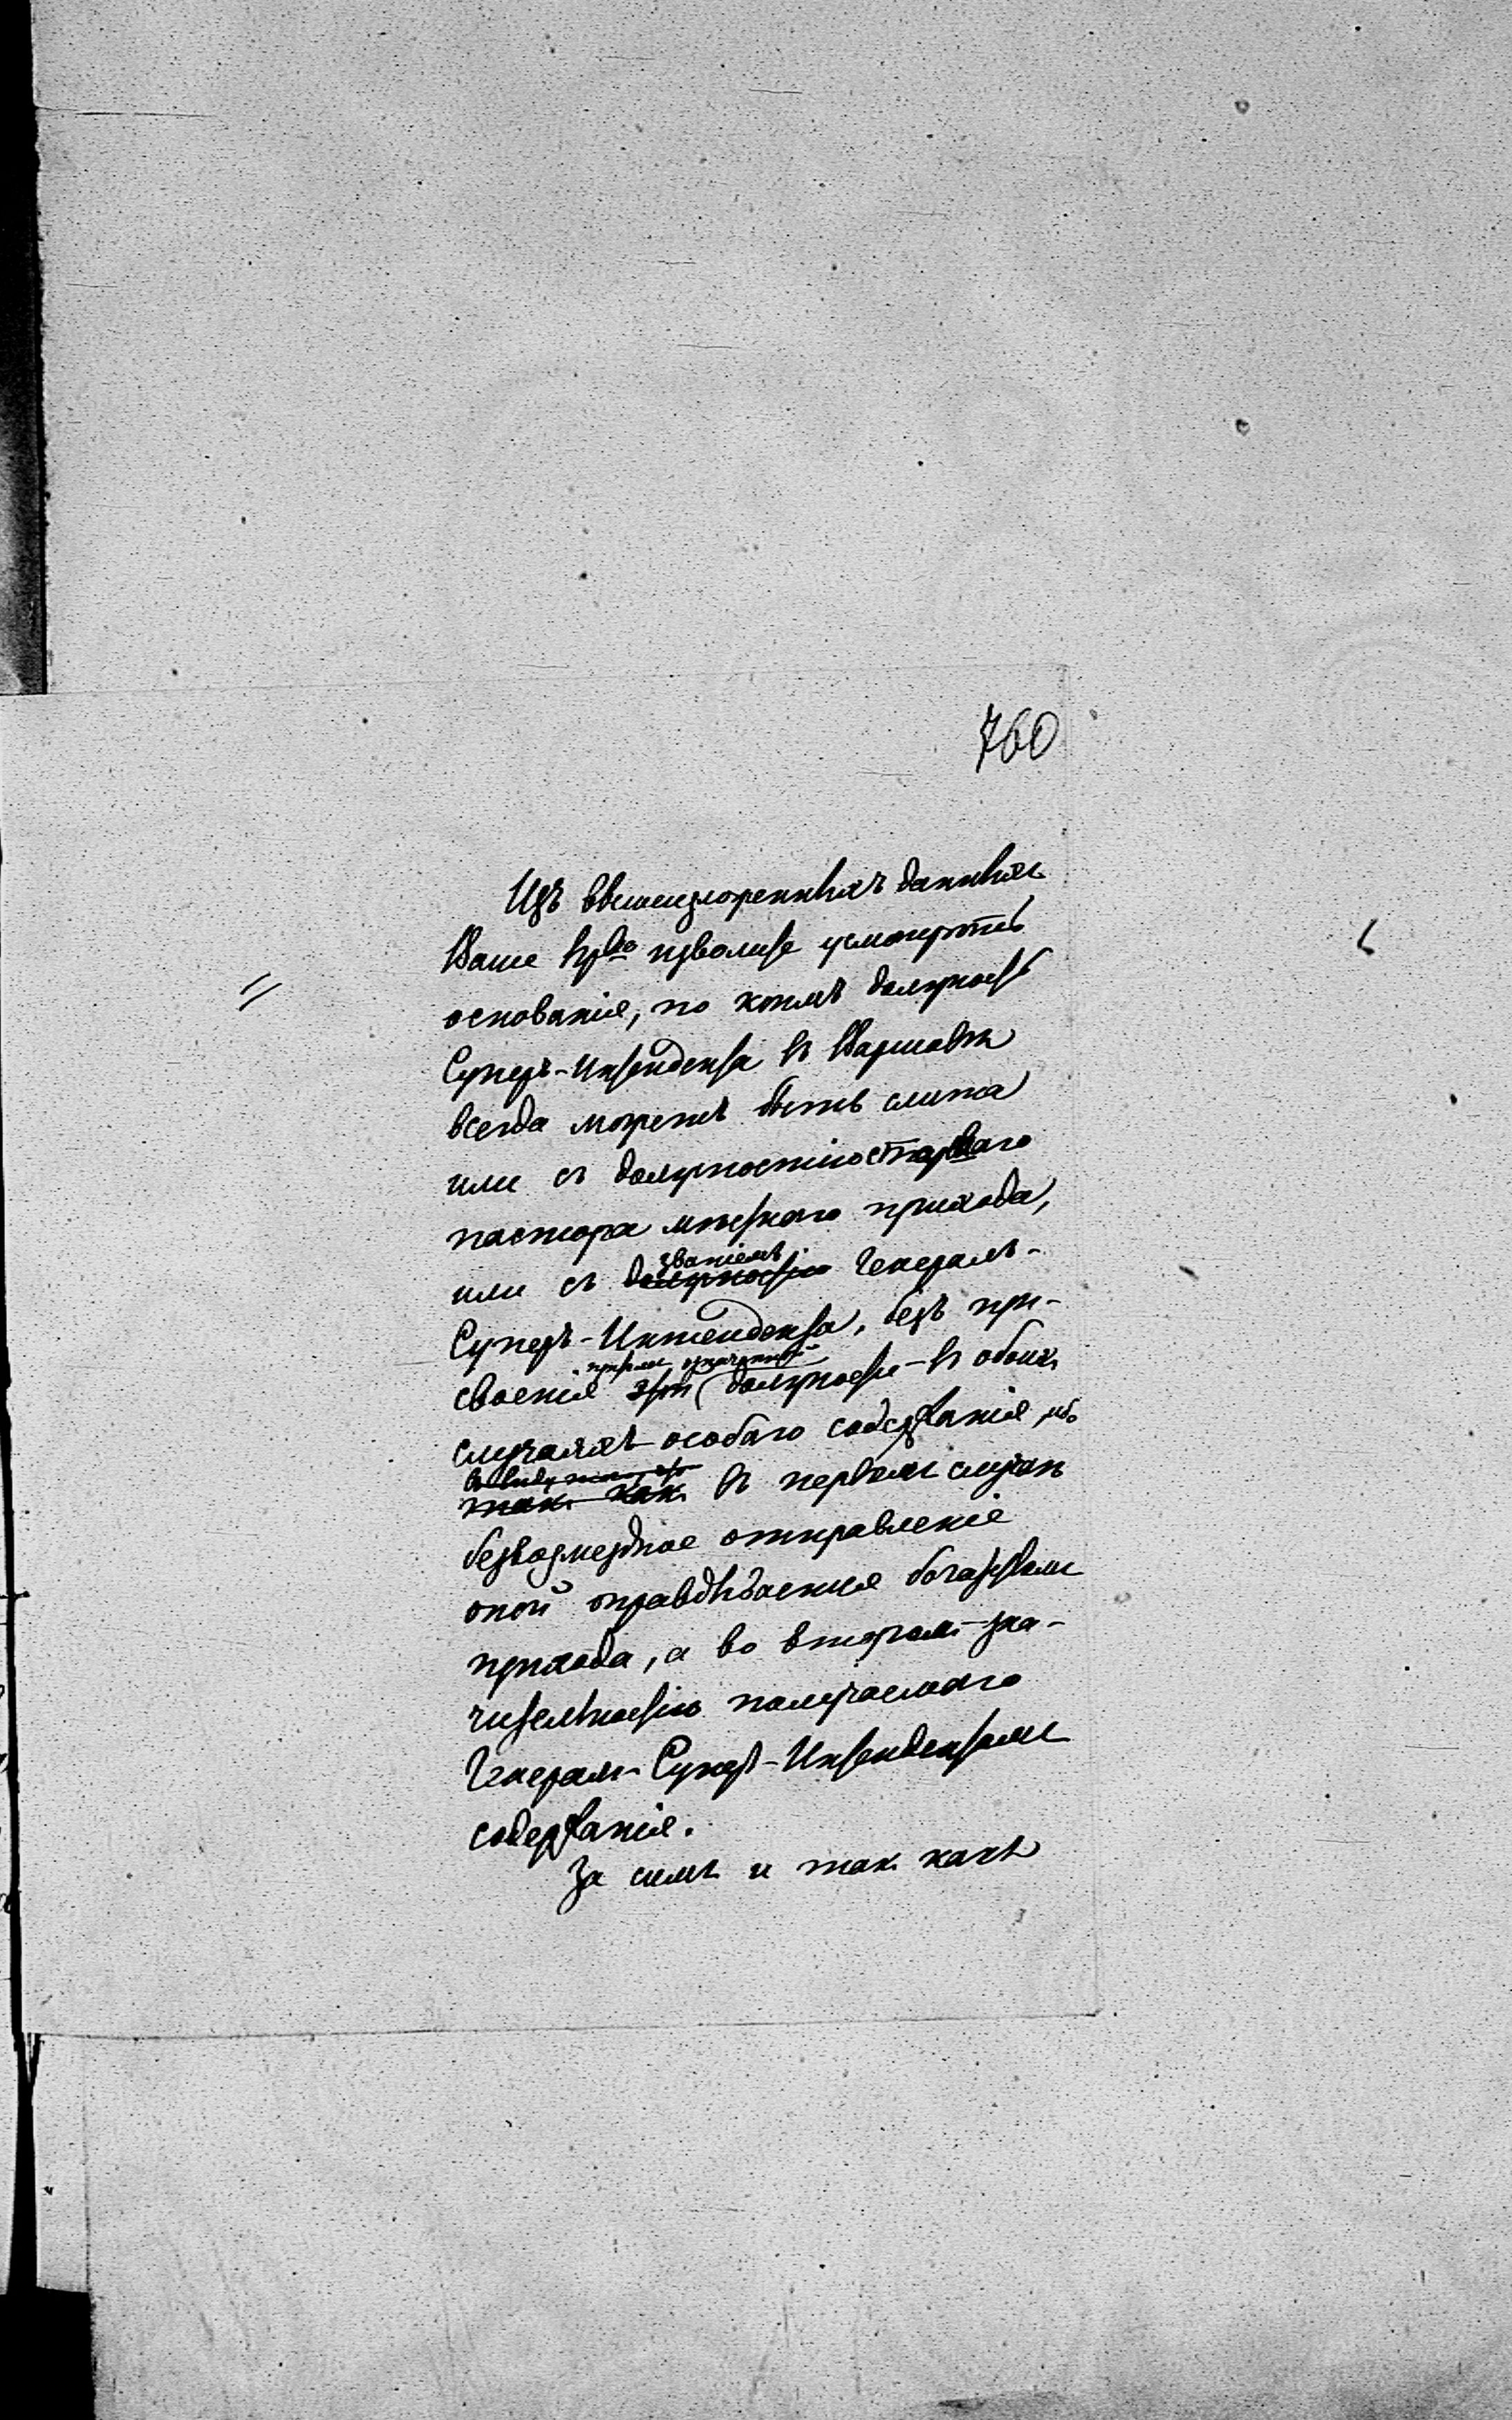 760
Изъ вышеизложенныхъ данныхъ
Ваше Прво изволите усмотрѣть
основанія, по коимъ должность
Суперъ-Интендента въ Варшавѣ
всегда можетъ быть слита
или съ должностію старшаго
пастора мѣстнаго прихода,
или съ должностію званіемъ Генералъ-
Суперъ-Интендента, безъ при-
своенія этой должности въ обоихъ
случаяхъ особаго содержанія, ибо
въ виду того, что
такъ какъ въ первомъ случаѣ
безвозмездное отправленіе
оной оправдывается богатствомъ
прихода, а во второмъ зна-
чительностію получаемаго
Генералъ-Суперъ-Интендентомъ
содержанія.
За симъ и такъ какъ